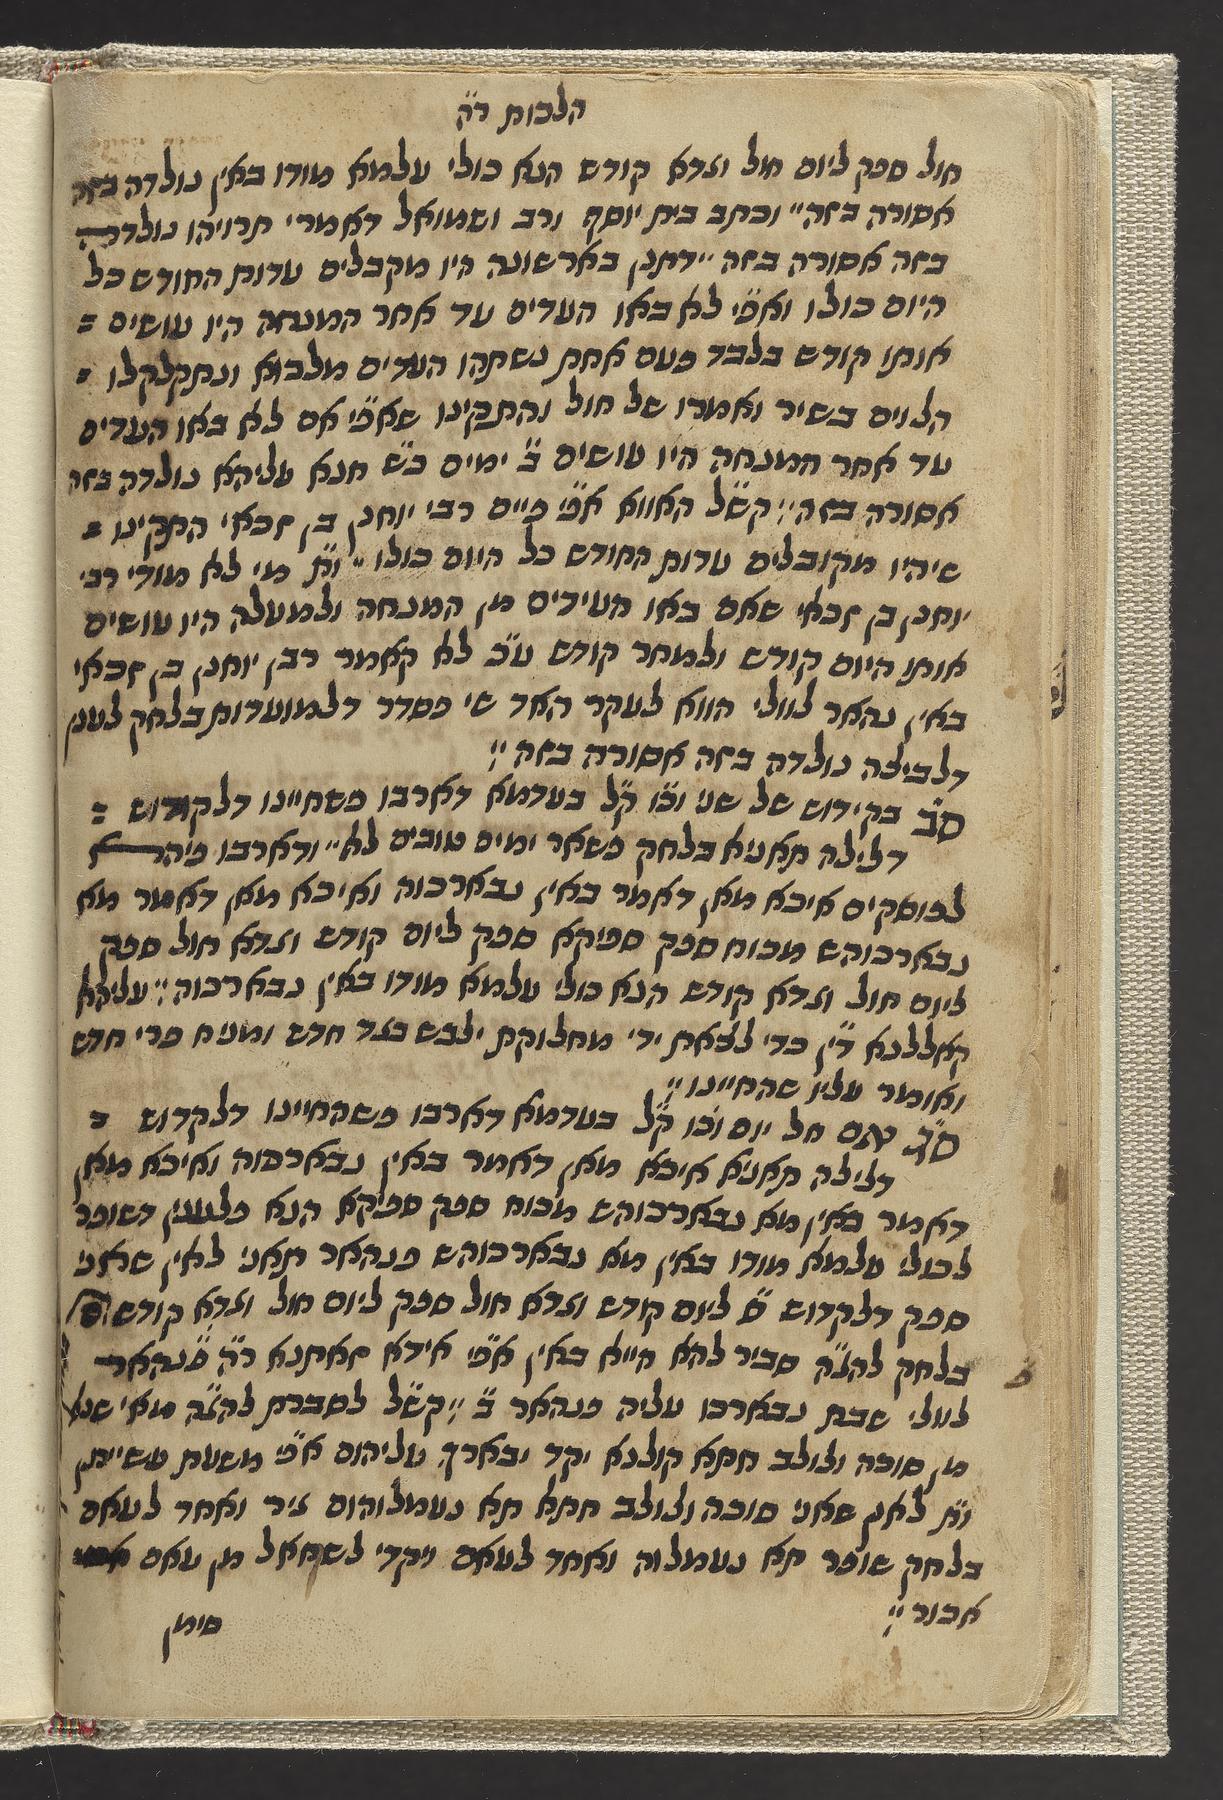 הלכות ר״ה
חול ספק ליום חול וצדא קודש הנא כולי עלמא מודו באין נולדה בזה
אסורה בזה״ וכתב בית יוסף ורב ושמואל דאמרי תרויהו נולדה
בזה אסורה בזה ״דתנן בארשונה היו מקבלים עדות החודש כל
היום כולו ואפ״י לא באו העדים עד אחר המנחה היו עושים =
אותו קודש בלבד פעם אחת נשתהו העדים מלבוא ונתקלקלו
הלוים בשיר ואמרו של חול והתקינו שאפ״י אם לא באו העדים
עד אחר המנחה היו עושים ב׳ ימים כ״ש חנא עליהא נולדה בזה
אסורה בזה״ קש״ל האווא אפ״י פיים רבי יוחנן בן זכאי התקינו =
שיהיו מקובלים עדות החודש כל היום כולו ״ ו״ת מי לא מודי רבי
יוחנן בן זכאי שאם באו העידים מן המנחה ולמעלה היו עושים
אותו היום קודש ולמחר קודש ע״כ לא קאמר רבן יוחנן בן זכאי
באין נהאר לוולי הווא לעקר האד שי פסדר דלמועדות בלחק לענין
דלביצה נולדה בזה אסורה בזה ״
ס״ב בקידוש של שני וכ״ו ק״ל בעדמא דארבו פשחיינו דלקודוש =
דלילה תאניא בלחק פשאר ימים טובים לא״ ודארבו פיהא
לפוסקים איכא מאן דאמר באין נבארכוה ואיכא מאן דאמר מא
נבארכוהש מכוח ספק ספיקא ספק ליום קודש וצדא חול ספק
ליום חול וצדא קודש הנא כולי עלמא מודו באין נבארכוה״ עליהא
קאללנא ד״ין כדי לצאת ידי מחלוקת ילבש בגד חדש ומניח פרי חדש
ואומר עליו שהחיינו״
ס״ג אם חל יום וכ״ו ק״ל בעדמא דארבו פשהחיינו דלקדוש =
דלילה תאניא איכא מאן דאמר באין נבארכוה ואיכא מאן
דאמר באין מא נבארכוהש מכוח ספק ספיקא הנא פלענין דשופר
לכולי עלמא מודו באין מא נבארכוהש פנהאר תאני לאין שראני
ספק דלקדוש ש״ם ליום קודש וצדא חול ספק ליום חול וצדא קודש
בלחק להצ״ה סביר להא הייא באין אפ״י אידא זאתנא ר״ה פנהאר
לוולי שבת נבארכו עליה פנהאר ב׳ ״ קש״ל לסברת להצ״ה מאי שנא
מן סוכה ולולב חתא קולנא יקד יבארך עליהום אפ״י משעת עשייתן
ו״ת לאין שאני סוכה ולולב חתא תא נעמלוהום ציר ואחד לעאם
בלחק שופר תא נעמלוה ואחד לעאם ויקדי לשחאל מן עאם
אכור ״
סימן